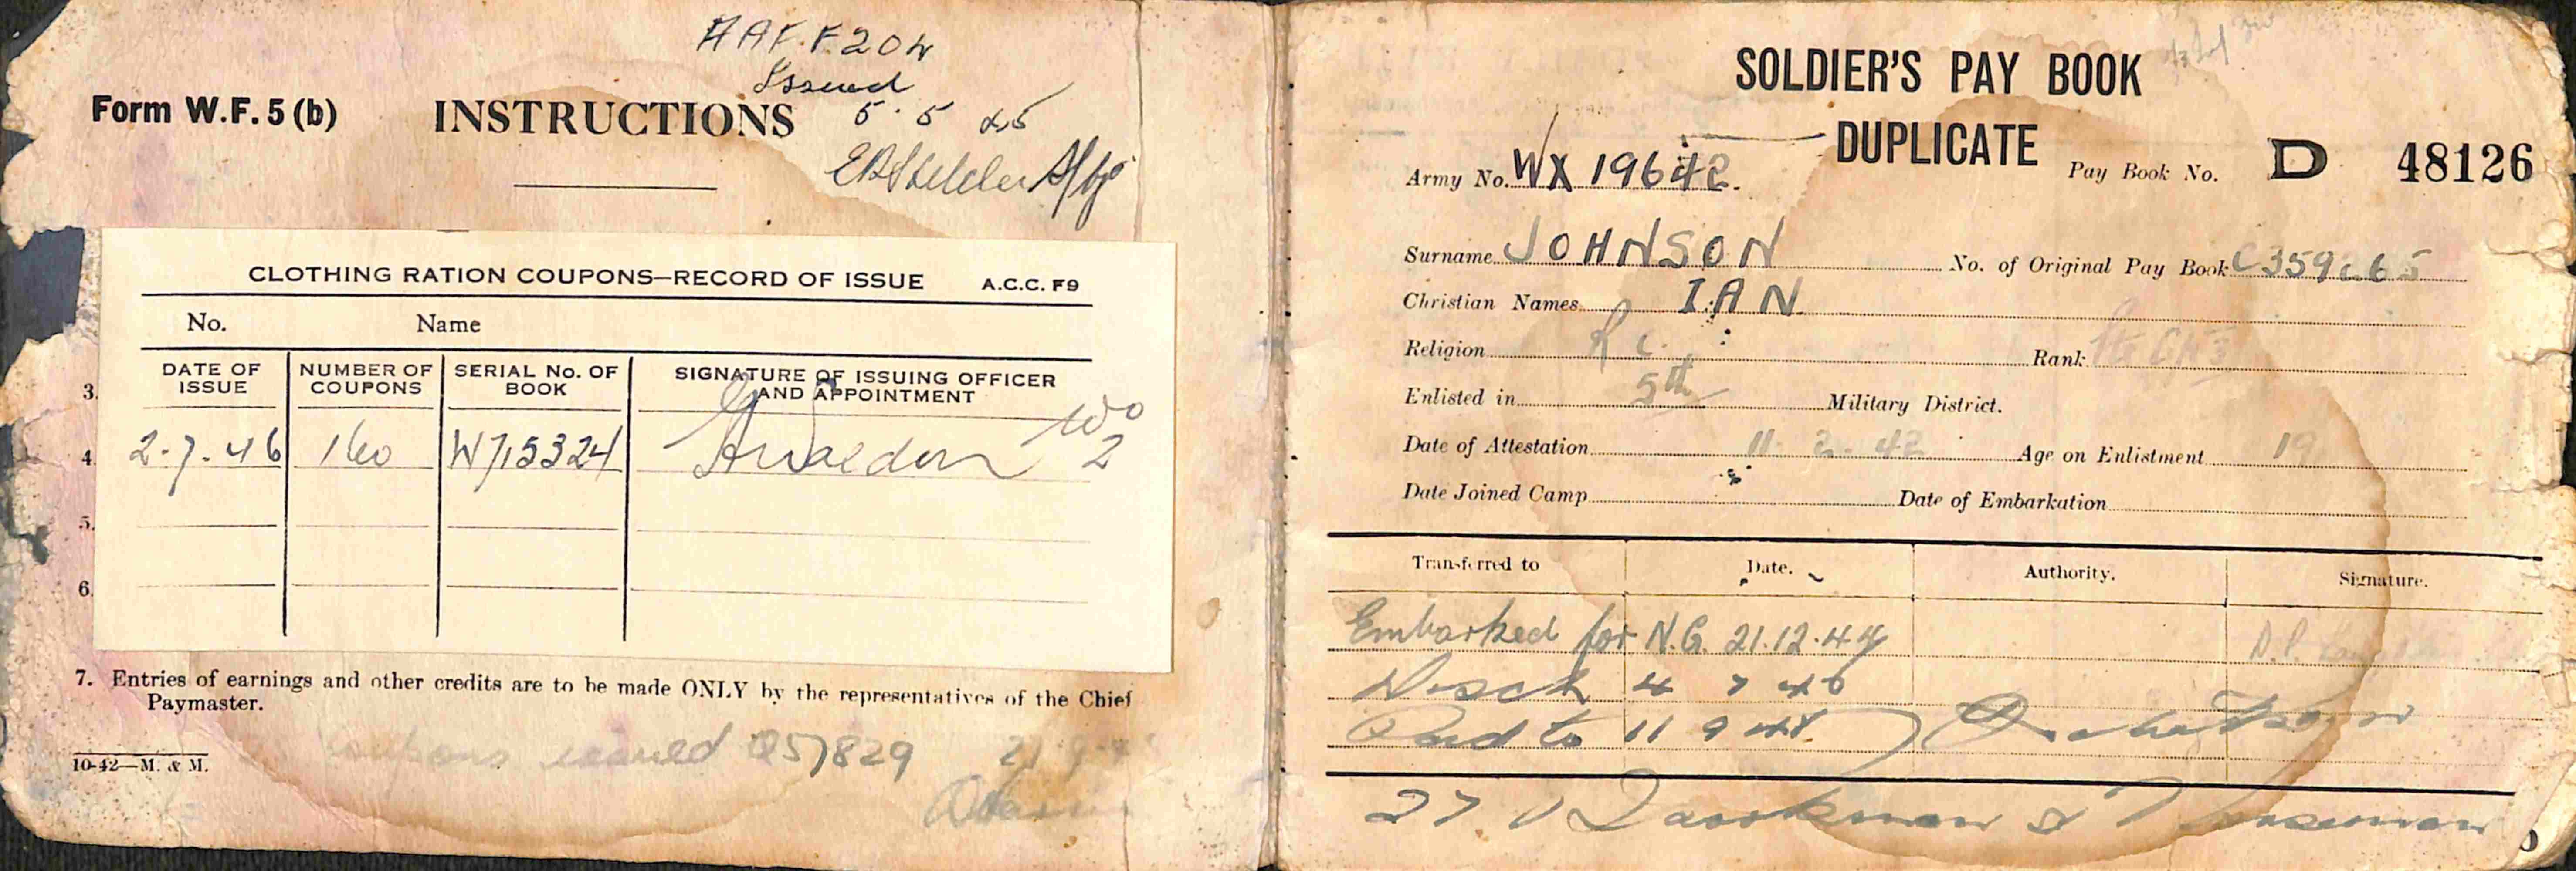 A A F. F 204
Issued
5 · 5 45
Form W.F. 5 (b) INSTRUCTIONS
CLOTHING RATION COUPONS—RECORD OF ISSUE A.C.C. F9
No. Name
DATE OF ISSUE NUMBER OF COUPONS SERIAL No. OF BOOK SIGNATURE OF ISSUING OFFICER AND APPOINTMENT
2-7-46 160 W715324 WO 2
3.
4.
5.
6.
7. Entries of earnings and other credits are to be made ONLY by the representatives of the Chief
Paymaster.
Coupons issued Q57829
10-42—M. & M.
SOLDIER'S PAY BOOK
DUPLICATE
Army No. WX 19642 Pay Book No. D 48126
Surname JOHNSON No. of Original Pay Book
Christian Names IAN
Religion R C. Rank
Enlisted in 5th Military District.
Date of Attestation 11-2-42 Age on Enlistment 19
Date Joined Camp Date of Embarkation
Transferred to Date. Authority. Signature.
Embarked for N.G. 21.12.44
Disch 4 7 46
Paid to 11 9 46
27